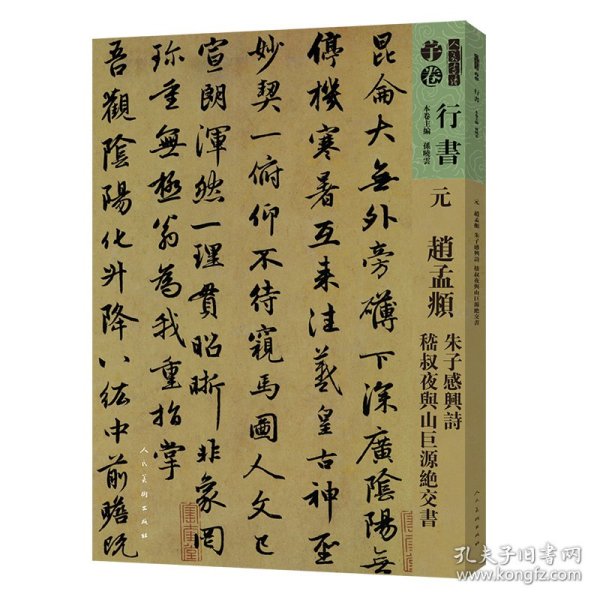 子卷
行書
本卷主編 孫曉雲
元 趙孟頫
朱子感興詩
嵇叔夜與山巨源絶交書
昆侖大無外旁礴下深廣陰陽無
停機寒暑互來往羲皇古神聖
妙契一俯仰不待窺馬圖人文已
宣朗渾然一理貫昭晰非象罔
珍重無極翁為我重指掌
吾觀陰陽化升降八紘中前瞻既
人民美術出版社
行書
元 趙孟頫 朱子感興詩 嵇叔夜與山巨源絶交書
人民美術出版社
孔夫子旧书网
www.kongfz.com